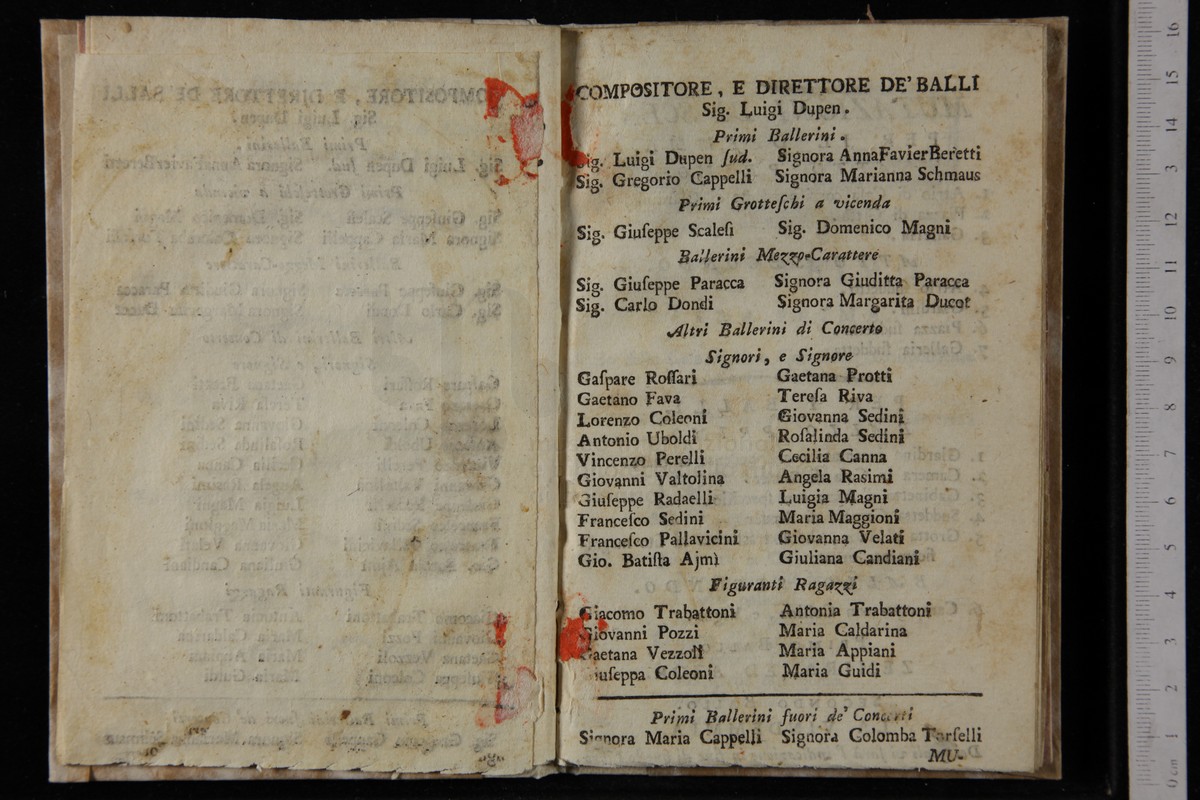 COMPOSITORE, E DIRETTORE DE' BALLI
Sig. Luigi Dupen.
Primi Ballerini.
Sig. Luigi Dupen ſud. Signora AnnaFavierBeretti
Sig. Gregorio Cappelli Signora Marianna Schmaus
Primi Grotteſchi a vicenda
Sig. Giuſeppe Scaleſi Sig. Domenico Magni
Ballerini Mezzo-Carattere
Sig. Giuſeppe Paracca Signora Giuditta Paracca
Sig. Carlo Dondi Signora Margarita Ducot
Altri Ballerini di Concerto
Signori, e Signore
Gaſpare Roſſari Gaetana Protti
Gaetano Fava Tereſa Riva
Lorenzo Coleoni Giovanna Sedini
Antonio Uboldi Roſalinda Sedini
Vincenzo Perelli Cecilia Canna
Giovanni Valtolina Angela Rasimi
Giuſeppe Radaelli Luigia Magni
Franceſco Sedini Maria Maggioni
Franceſco Pallavicini Giovanna Velati
Gio. Batiſta Ajmì Giuliana Candiani
Figuranti Ragazzi
Giacomo Trabattoni Antonia Trabattoni
Giovanni Pozzi Maria Caldarina
Gaetana Vezzoli Maria Appiani
Giuſeppa Coleoni Maria Guidi
Primi Ballerini fuori de' Concerti
Signora Maria Cappelli Signora Colomba Torſelli
MU-